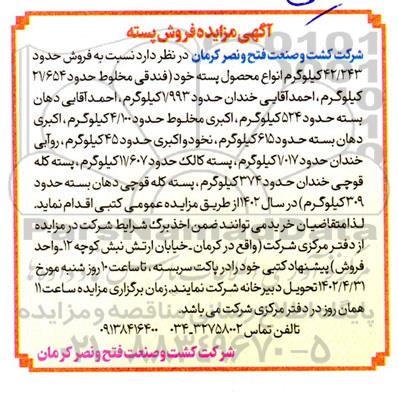 آگهی مزایده فروش پسته
شرکت کشت و صنعت فتح و نصر کرمان در نظر دارد نسبت به فروش حدود
۴۲/۲۴۳ کیلوگرم انواع محصول پسته خود (فندقی مخلوط حدود ۲۱/۶۵۴
کیلوگرم ، احمدآقایی خندان حدود ۱/۹۹۳ کیلوگرم ، احمدآقایی دهان
بسته حدود ۵۲۴ کیلوگرم ، اکبری مخلوط حدود ۴/۱۰۰ کیلوگرم ، اکبری
دهان بسته حدود ۶۱۵ کیلوگرم ، نخودو اکبری حدود ۴۵ کیلوگرم ، روآبی
خندان حدود ۱/۰۱۷ کیلوگرم ، پسته کالک حدود ۱۱/۶۰۷ کیلوگرم ، پسته کله
قوچی خندان حدود ۳۷۴ کیلوگرم ، پسته کله قوچی دهان بسته حدود
۳۰۹ کیلوگرم) در سال ۱۴۰۲ از طریق مزایده عمومی کتبی اقدام نماید.
لذا متقاضیان خرید می توانند ضمن اخذ برگ شرایط شرکت در مزایده
از دفتر مرکزی شرکت (واقع در کرمان ـ خیابان ارتش نبش کوچه ۱۲ـ واحد
فروش) پیشنهاد کتبی خود را در پاکت سربسته ، تا ساعت ۱۰ روز شنبه مورخ
۱۴۰۲/۴/۳۱ تحویل دبیرخانه شرکت نمایند. زمان برگزاری مزایده ساعت ۱۱
همان روز در دفتر مرکزی شرکت می باشد.
تلفن تماس ۳۲۷۵۸۰۰۲ـ۰۳۴ ۰۹۱۳۸۴۱۶۴۰۰
شرکت کشت و صنعت فتح و نصر کرمان
۰۲۱-۸۸۳۴۹۶۷۰-۵